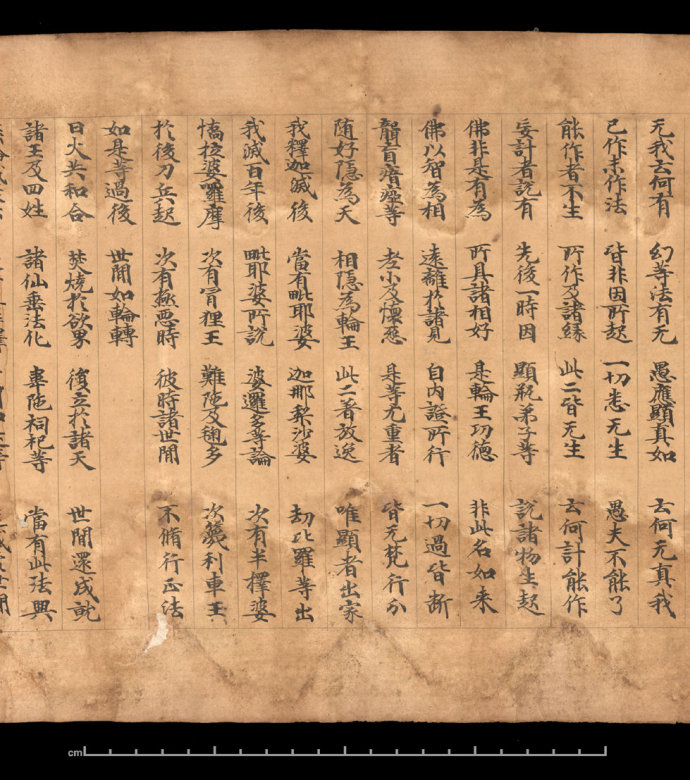 无我云何有 幻等法有无 愚應顯真如 云何无真我
已作未作法 皆非因所起 一切悉无生 愚夫不能了
能作者不生 所作及諸緣 此二皆无生 云何計能作
妄計者說有 先後一時因 顯瓶弟子等 說諸物生起
佛非是有為 所具諸相好 是輪王功德 非此名如来
佛以智為相 遠離於諸見 自内證所行 一切過皆断
聾盲瘖瘂等 老小及懷惡 是等尤重者 皆无梵行分
随好隱為天 相隱為輪王 此二著放逸 唯顯者出家
我釋迦滅後 當有毗耶婆 迦那梨沙婆 劫比羅等出
我滅百年後 毗耶婆所說 婆邏多等論 次有半擇娑
憍拉婆囉摩 次有冐狸王 難陁及毱多 次篾利車王
於後刀兵起 次有極惡時 彼時諸世間 不脩行正法
如是等過後 世間如輪轉
日火共和合 焚燒於欲界 復立於諸天 世間還成就
諸王及四姓 諸仙垂法化 韋陁祠祀等 當有此法興